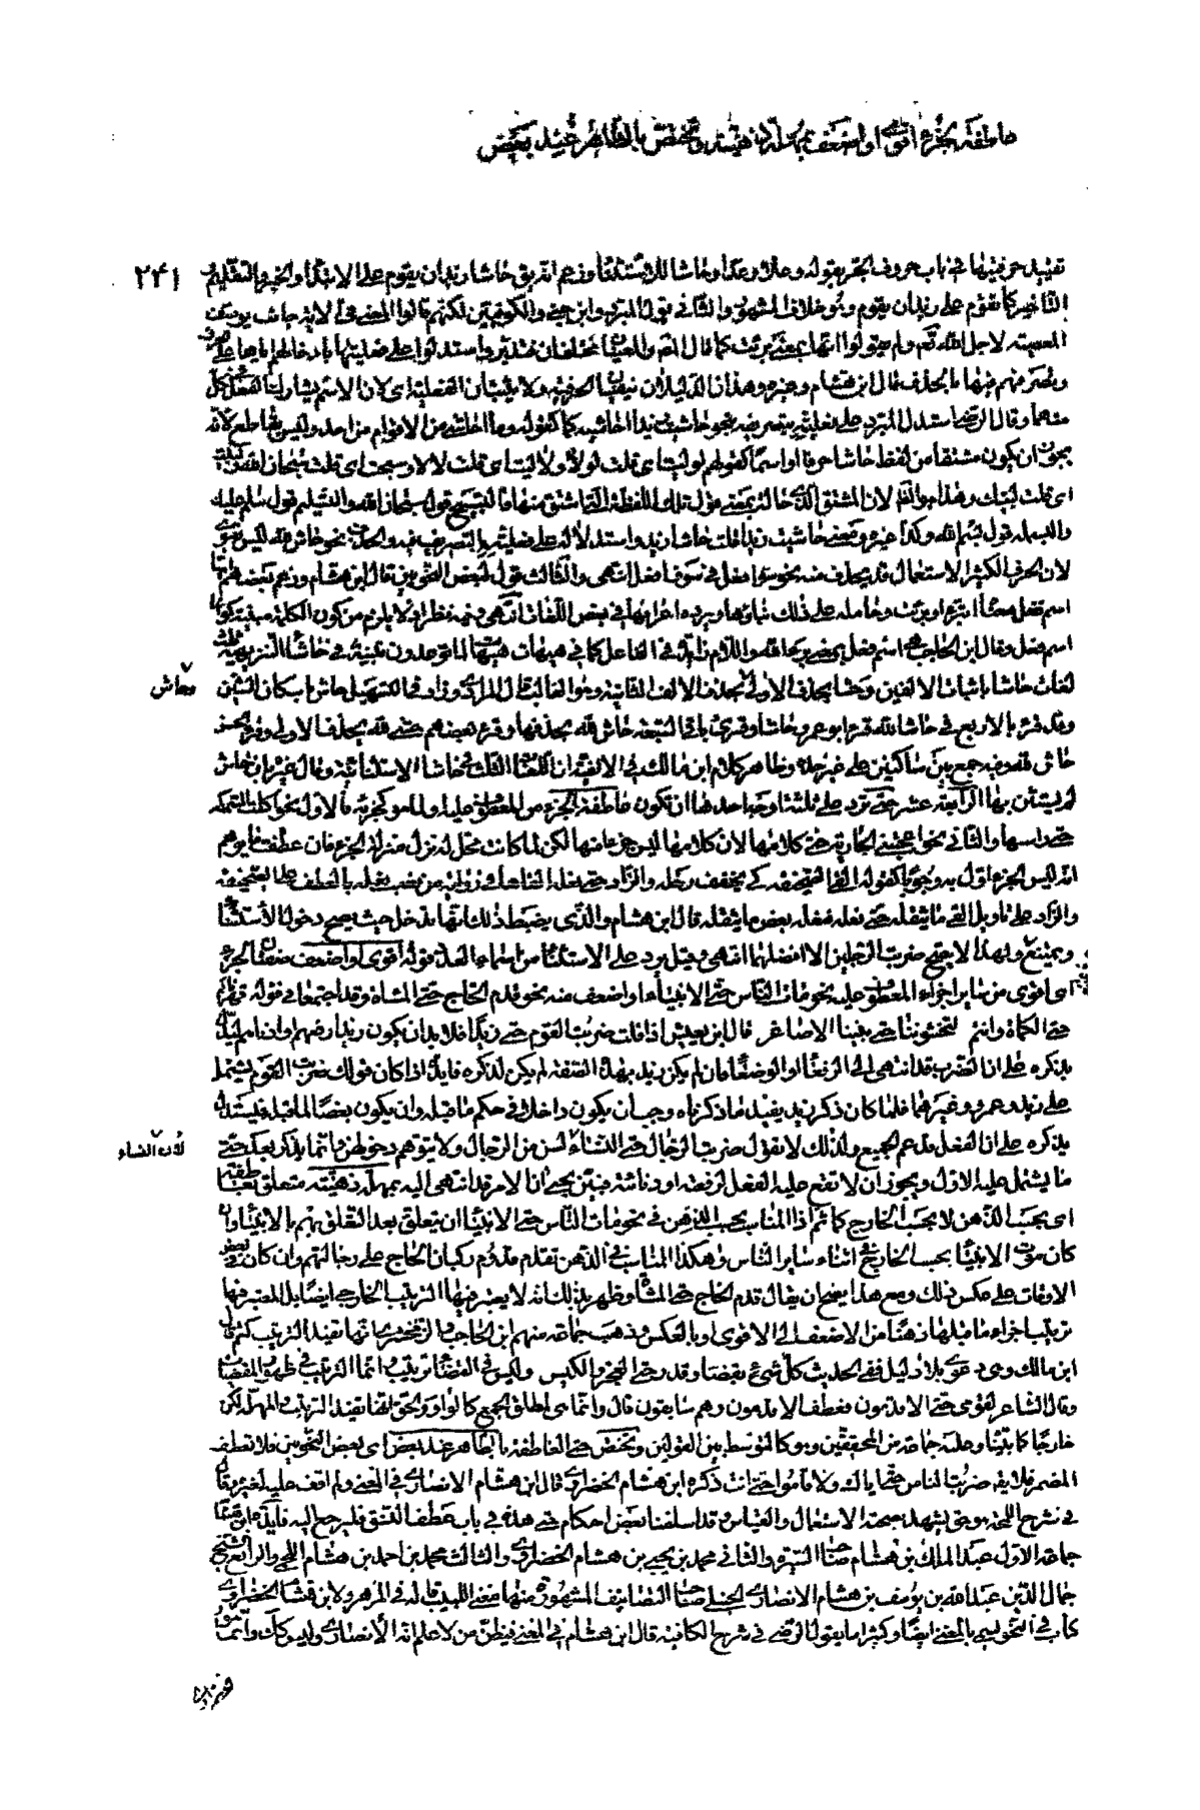 عاطفة لجزء اقوى او اضعف بمهلة ذهنية وتختص بالظاهر عند بعض
٢٤١
تقييد حرفيتها في باب حروف الجر بقوله وخلا وعدا وحاشا للاستثناء وزعم الفريق حاشا زيد ان يقوم على الابتداء والخبر والتقديم
التاخير كما تقوم على زيد ان يقوم وهو خلاف المشهور والثاني قول المبرد وابن جني والكوفيين لكنهم قالوا المعنى في الاية جانب يوسف
المعصية لاجل الله نعم ولم يقولوا انها بمعنى برئت كما قال المصنف واستدلوا على فعليتها بادخالهم اياها على الحرف
وتصرفهم فيها بالحذف قال ابن هشام وغيره وهذان الدليلان ينفيان الحرفية ولا يثبتان الفعلية اى لان الاسم يشارك الفعل في كل
منهما وقال الرضي استدل المبرد على فعليته بتصريفه نحو حاشيت زيدا احاشيه كما كقوله وما احاشي من الاقوام من احد وليس بقاطع لانه
يجوز ان يكون مشتقا من لفظ حاشا حرفا او اسما كقولهم لوليت اى قلت لولا ولاليت اى قلت لا لا وسبحت اى قلت سبحان الله ولبيت
اى قلت لبيك وهذا هو الظاهر لان المشتق الذي حاله بمعنى قول تلك اللفظة التي اشتق منها فالتسبيح قول سبحان الله والتسليم قول سلم عليك
والبسملة قول بسم الله وكذا غيره ومعنى حاشيت زيدا قلت حاشا زيد واستدلاله على فعليته بالتصريف فيه والحذف نحو حاش لله ليس بقوى
لان الحرف الكثير الاستعمال قد يحذف منه نحو سو افعل في سوف افعل انتهى والثالث قول لبعض النحويين قال ابن هشام وزعم بعضهم انها
اسم فعل معناه اتبرأ او برئت وحامله على ذلك بناؤها ويرده اعرابها في بعض اللغات انتهى وفيه نظر اذ لا يلزم من كون الكلمة مبنية كونها
اسم فعل وقال ابن الحاجب هي اسم فعل بمعنى برئ الله واللام زائدة في الفاعل كما في هيهات هيهات لما توعدون تنبيه في حاشا التنزيهية ثلث
لغات حاشا باثبات الالفين وحشا بحذف الاولى وحاش بحذف الالف الثانية وهو الغالب قال المرادى وزاد في التسهيل حاش باسكان الشين
وحاش
وقد قرئ بالاربع في حاشا لله قرا ابو عمرو حاشا وقرئ باقي السبعة حاش لله بحذفها وقرء بعضهم حشى لله بحذف الاولى وقرء الحسن
حاش لله وفيه جمع بين ساكنين على غير حده وظاهر كلام ابن مالك في الالفية ان اللغات الثلث في حاشا الاستثنائية وقال غيره ان حاش
لم يستثن بها الرابعة عشر حتى ترد على ثلثة اوجه احدها ان تكون عاطفة لجزء من المعطوف عليه او لما هو كجزئه فالاول نحو اكلت السمكة
حتى راسها والثاني نحو اعجبتني الجارية حتى كلامها لان كلامها ليس جزءا منها لكن لما كانت محلا له نزل منزلة الجزء فان عطفت ما يوهم
انه ليس الجزء اول به وجوبا كقوله القى الصحيفة كي يخفف رحله والزاد حتى نعله القاها في رواية من نصب نعله بالعطف على الصحيفة
والزاد على تاويل القى ما يثقله حتى نعله فنعله بعض ما يثقله قال ابن هشام والذى يضبط ذلك انها تدخل حيث صح دخول الاستثناء
ويمتنع ولهذا لا يصح ضربت الرجلين الا افضلهما انتهى وقيل يرد على الاستثناء من اسماء العدد قوله اقوى او اضعف صفة لجزء
اى اقوى من سائر اجزاء المعطوف عليه نحو مات الناس حتى الانبياء او اضعف منه نحو قدم الحاج حتى المشاة وقد اجتمعا في قوله قهرناكم
حتى الكماة وانتم تخشوننا حتى بنينا الاصاغر قال ابن يعيش اذا قلت ضربت القوم حتى زيدا فلا بد ان يكون زيد ارفعهم او ادناهم ليدل
بذكره على ان الضرب قد انتهى الى الرفعاء او الوضعاء فان لم يكن زيد بهذه الصفة لم يكن لذكره فائدة اذا كان قولك ضربت القوم يشتمل
على زيد وعمرو وغيرهما فلما كان ذكر زيد يفيد ما ذكرناه وجب ان يكون داخلا في حكم ما قبله وان يكون بعضا لما قبله فيستدل
بذكره على ان الفعل قد عم الجميع ولذلك لا تقول ضربت الرجال حتى النساء لسن من الرجال ولا يتوهم دخولهن وانما يذكر بعد حتى
لان النساء
ما يشتمل عليه الاول ويجوز ان لا تقع عليه الفعل لرفعته او دناءته فيبين بحتى ان الامر قد انتهى اليه بمهلة ذهنية متعلق بعاطفة
اى بحسب الذهن لا بحسب الخارج كما ثم اذ المناسب بحسب الذهن في نحو مات الناس حتى الانبياء ان يتعلق بعد التعلق بهم بالانبياء وان
كان موت الانبياء بحسب الخارج في اثناء سائر الناس وهكذا المناسب في الذهن تقدم قدوم ركبان الحاج على رجالتهم وان كان في بعض
الاوقات على عكس ذلك ومع هذا يصح ان يقال قدم الحاج حتى المشاة وظهر بذلك انه لا يعتبر فيها الترتيب الخارجي ايضا بل المعتبر فيها
ترتيب اجزاء ما قبلها ذهنا من الاضعف الى الاقوى او بالعكس وذهب جماعة منهم ابن الحاجب والزمخشرى انها تفيد الترتيب كثم قال
ابن مالك وهي دعوى بلا دليل ففي الحديث كل شئ بقضاء وقدر حتى العجز والكيس وليس في القضاء ترتيب وانما الترتيب في ظهور المقضيات
وقال الشاعر لقومي حتى الاقدمون فعطف الاقدمون وهم سابقون قال وانما هي لمطلق الجمع كالواو والحق انها تفيد الترتيب والمهلة لكن
خارجا كما بينا وعليه جماعة من المحققين وهو كالتوسط بين القولين وتختص حتى العاطفة بالظاهر عند بعض اى بعض النحويين فلا تعطف
المضمر فلا يقال ضربت الناس حتى اياك ولا قاموا حتى انت ذكره ابن هشام الخضراوى قال ابن هشام الانصارى في المغني ولم اقف عليه لغيره وقال
في شرح اللمحة هو حق يشهد بصحته الاستعمال والقياس وقد اسلفنا بعض احكام حتى هذه في باب عطف النسق فليرجع اليه فائدة ابن هشام
جماعة الاول عبد الملك بن هشام صاحب السيرة والثاني محمد بن يحيى بن هشام الخضراوى والثالث محمد بن احمد بن هشام اللخمي والرابع الشيخ
جمال الدين عبد الله بن يوسف بن هشام الانصارى الحنبلي صاحب التصانيف المشهورة منها مغني اللبيب قاله في المزهر ولابن هشام الخضراوى
كتاب في النحو يسمى بالمغني ايضا وكثيرا ما يقول الرضي في شرح الكافية قال ابن هشام في المغني فيظن من لا علم له انه الانصارى وليس كذلك وانما هو